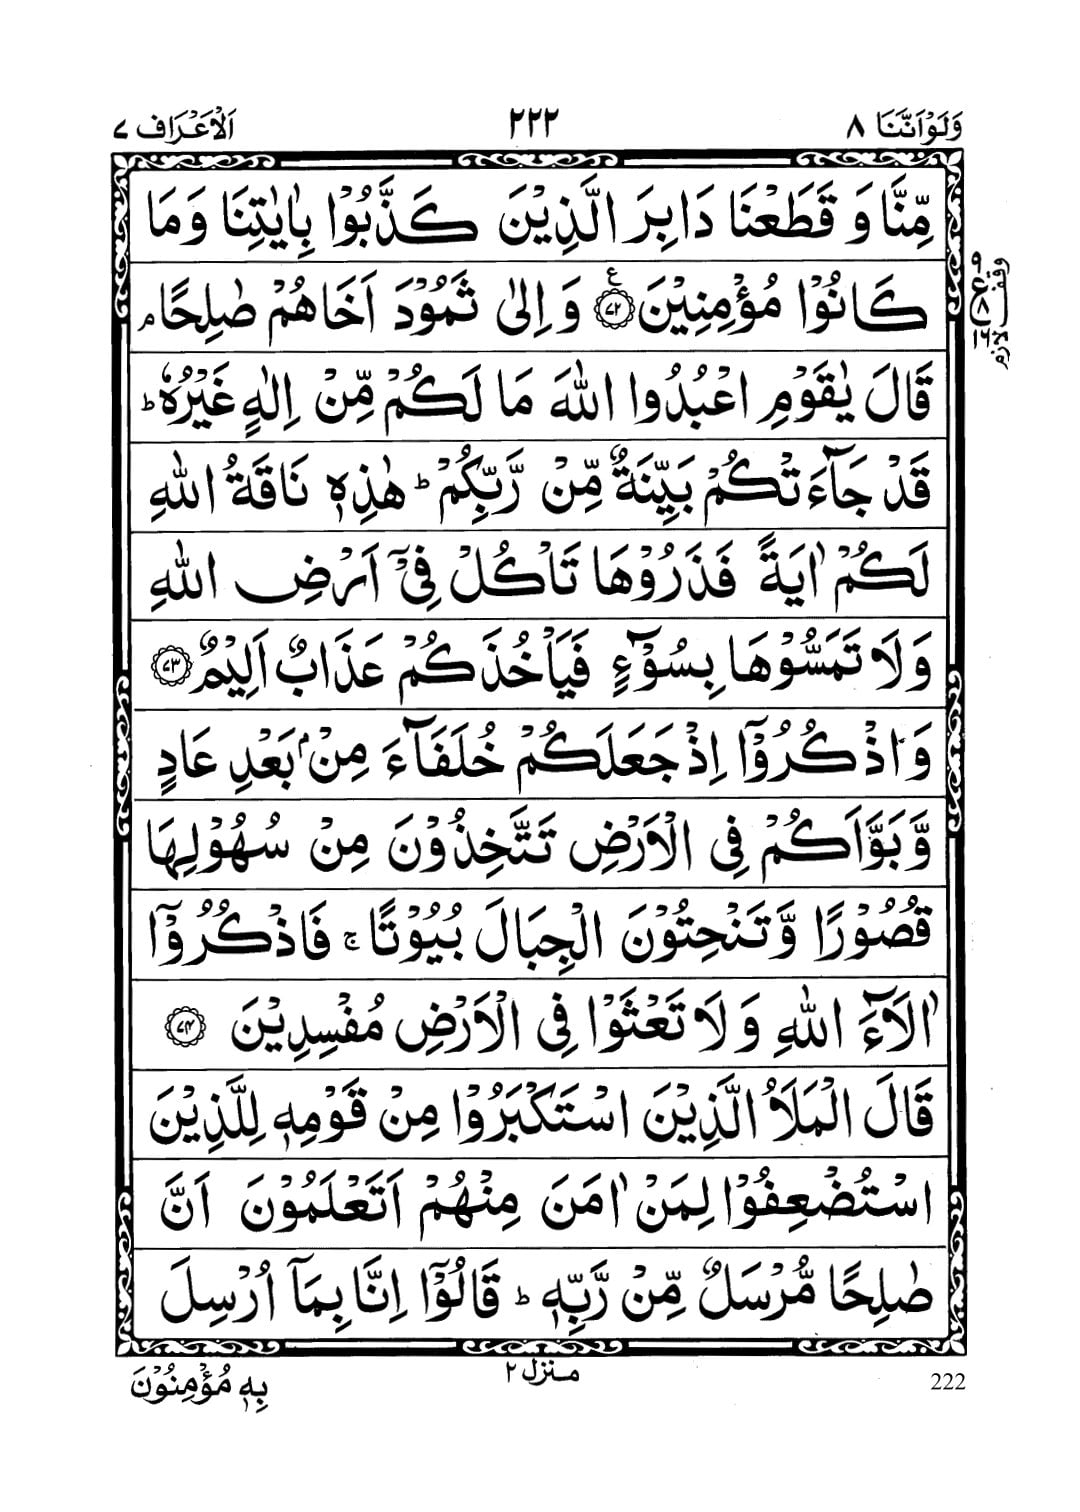 وَلَوْاَنَّنَا ٨ ٢٢٢ اَلْاَعْرَاف ٧
مِّنَّا وَ قَطَعْنَا دَابِرَ الَّذِيْنَ كَذَّبُوْا بِاٰيٰتِنَا وَ مَا
كَانُوْا مُؤْمِنِيْنَ ۧ﴿٧٢﴾ وَ اِلٰى ثَمُوْدَ اَخَاهُمْ صٰلِحًا ۘ
قَالَ يٰقَوْمِ اعْبُدُوا اللّٰهَ مَا لَكُمْ مِّنْ اِلٰهٍ غَيْرُهٗ ؕ
قَدْ جَآءَتْكُمْ بَيِّنَةٌ مِّنْ رَّبِّكُمْ ؕ هٰذِهٖ نَاقَةُ اللّٰهِ
لَكُمْ اٰيَةً فَذَرُوْهَا تَاْكُلْ فِيْۤ اَرْضِ اللّٰهِ
وَلَا تَمَسُّوْهَا بِسُوْٓءٍ فَيَاْخُذَكُمْ عَذَابٌ اَلِيْمٌ ﴿٧٣﴾
وَ اذْكُرُوْۤا اِذْ جَعَلَكُمْ خُلَفَآءَ مِنْۢ بَعْدِ عَادٍ
وَّ بَوَّاَكُمْ فِى الْاَرْضِ تَتَّخِذُوْنَ مِنْ سُهُوْلِهَا
قُصُوْرًا وَّ تَنْحِتُوْنَ الْجِبَالَ بُيُوْتًا ۚ فَاذْكُرُوْۤا
اٰلَآءَ اللّٰهِ وَ لَا تَعْثَوْا فِى الْاَرْضِ مُفْسِدِيْنَ ﴿٧٤﴾
قَالَ الْمَلَاُ الَّذِيْنَ اسْتَكْبَرُوْا مِنْ قَوْمِهٖ لِلَّذِيْنَ
اسْتُضْعِفُوْا لِمَنْ اٰمَنَ مِنْهُمْ اَتَعْلَمُوْنَ اَنَّ
صٰلِحًا مُّرْسَلٌ مِّنْ رَّبِّهٖ ؕ قَالُوْۤا اِنَّا بِمَاۤ اُرْسِلَ
وقف لازم
ع ٨ ١٦
منزل ٢
بِهٖ مُؤْمِنُوْنَ
222